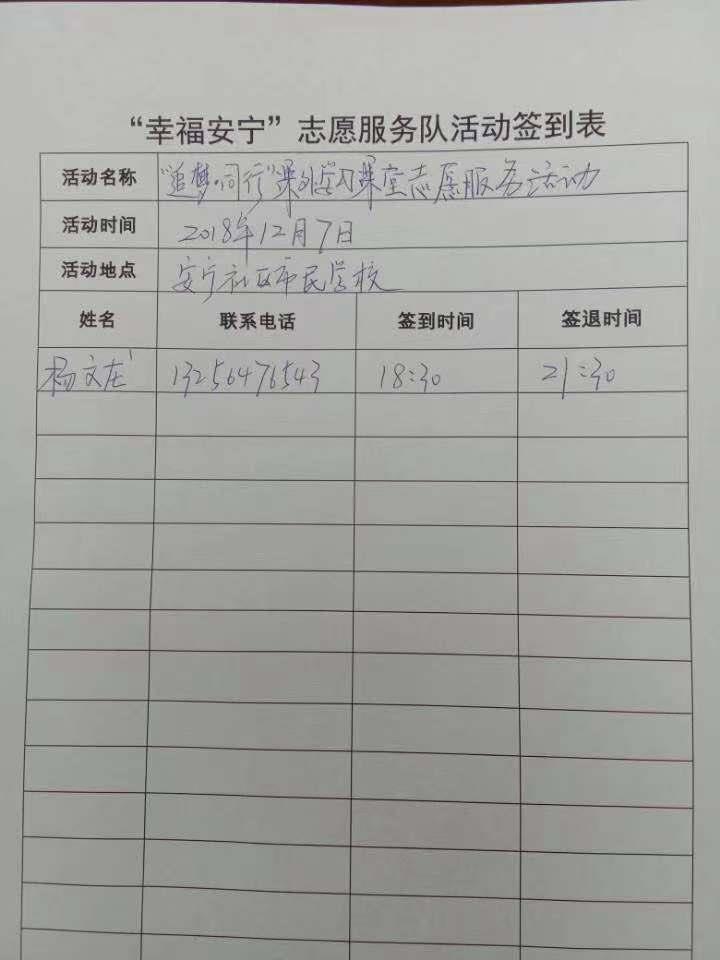 “幸福安宁”志愿服务队活动签到表
活动名称 “追梦·同行”课外学习课堂志愿服务活动
活动时间 2018年12月7日
活动地点 安宁社区市民学校
姓名 联系电话 签到时间 签退时间
杨文龙 13256476543 18:30 21:30